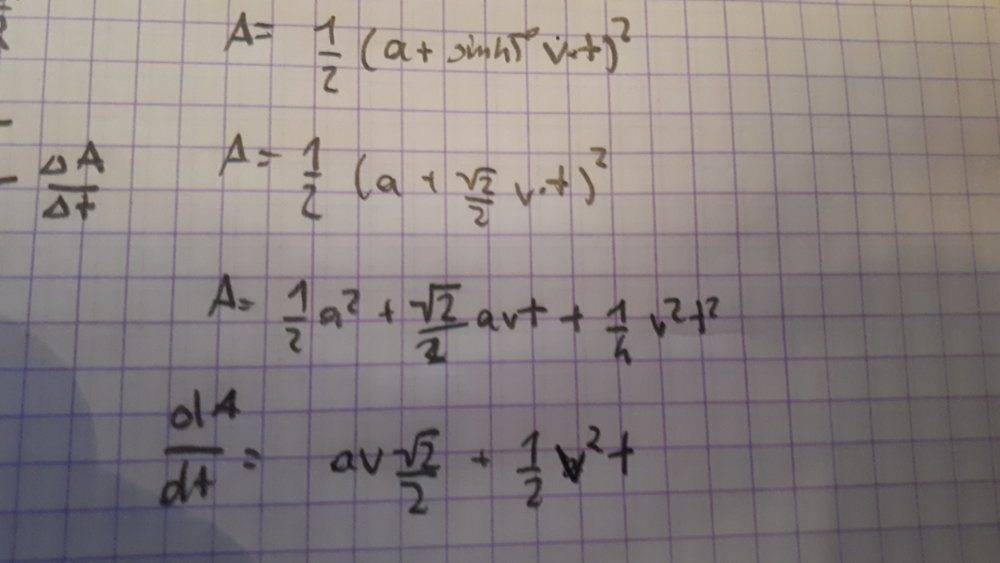 A = 1/2 (a + sin45° v·t)²
ΔA/Δt A = 1/2 (a + √2/2 v·t)²
A = 1/2 a² + √2/2 avt + 1/4 v²t²
dA/dt = av √2/2 + 1/2 v²t